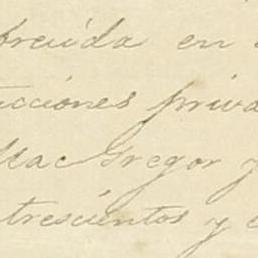 frecida en
cciones priva
MacGregor y
trescientos y